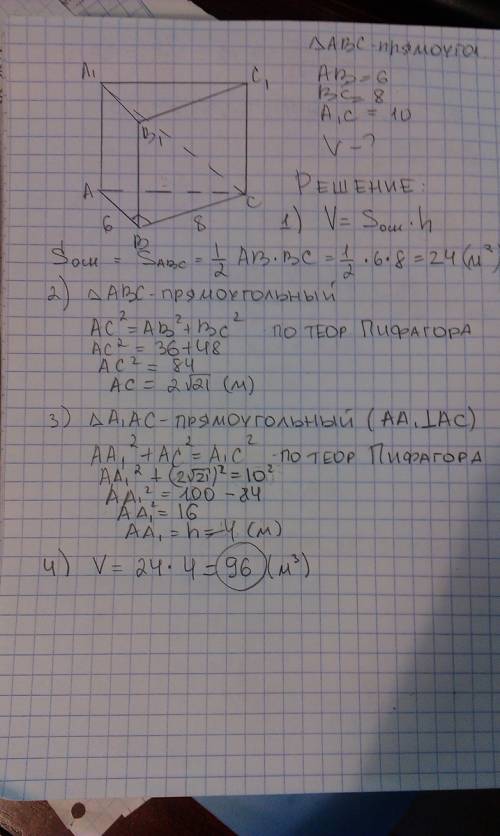 ΔABC-прямоуго
AB = 6
BC = 8
A₁C = 10
V - ?
A₁
C₁
B₁
A
C
6
8
B
РЕШЕНИЕ:
1) V = Sосн · h
Sосн = SABC = 1/2 AB · BC = 1/2 · 6 · 8 = 24 (м²)
2) ΔABC - прямоугольный
AC² = AB² + BC² по теор Пифагора
AC² = 36 + 48
AC² = 84
AC = 2√21 (м)
3) ΔA₁AC - прямоугольный (AA₁⊥AC)
AA₁² + AC² = A₁C² - по теор Пифагора
AA₁² + (2√21)² = 10²
AA₁² = 100 - 84
AA₁² = 16
AA₁ = h = 4 (м)
4) V = 24 · 4 = 96 (м³)